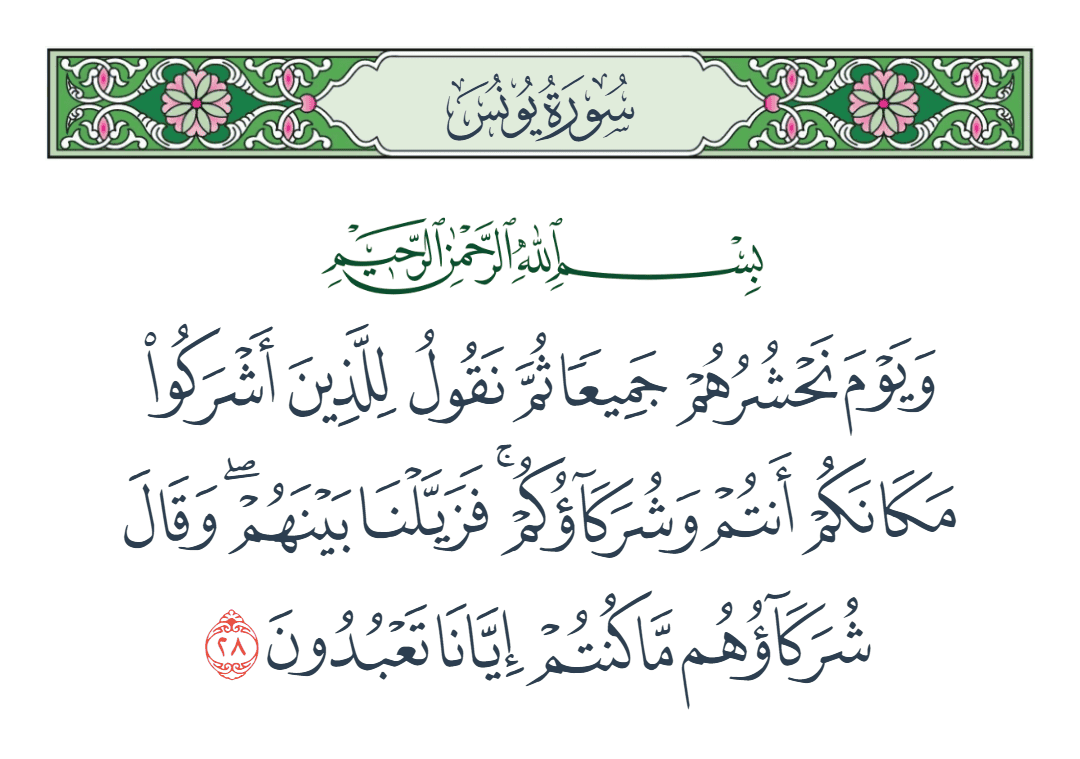 سُورَةُ يُونُسَ
بِسْمِ ٱللَّهِ ٱلرَّحْمَٰنِ ٱلرَّحِيمِ
وَيَوْمَ نَحْشُرُهُمْ جَمِيعًا ثُمَّ نَقُولُ لِلَّذِينَ أَشْرَكُوا۟
مَكَانَكُمْ أَنتُمْ وَشُرَكَآؤُكُمْ ۚ فَزَيَّلْنَا بَيْنَهُمْ ۖ وَقَالَ
شُرَكَآؤُهُم مَّا كُنتُمْ إِيَّانَا تَعْبُدُونَ ٢٨